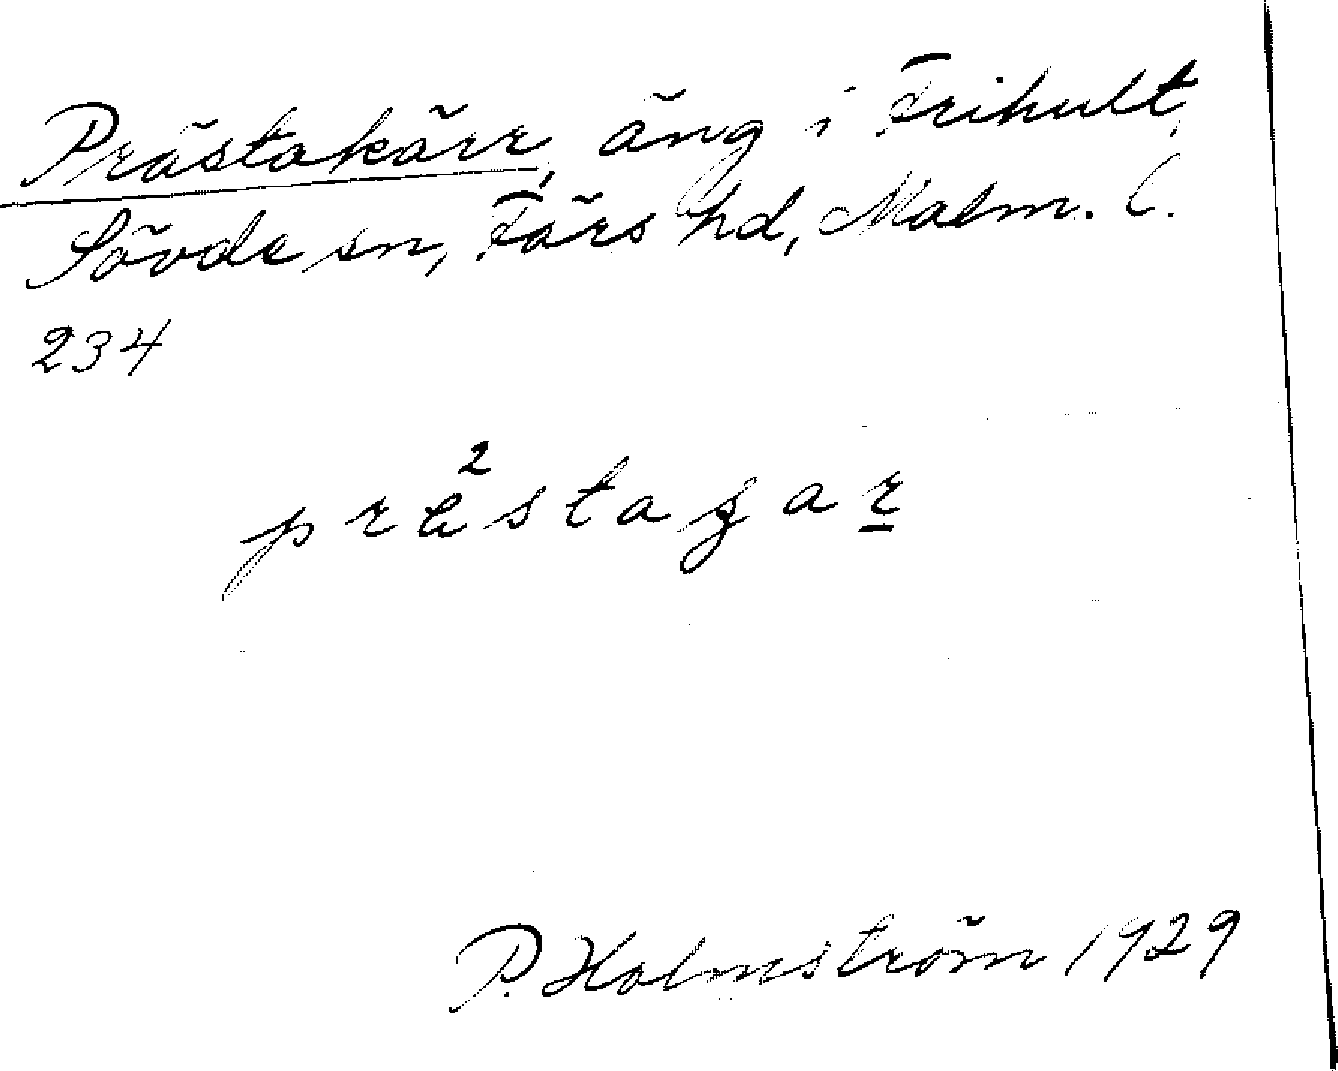 Prästakärr, äng i Frihult,
Sövde sn, Färs hd, Malm. l.
234
2
prästagar
P. Holmström 1929